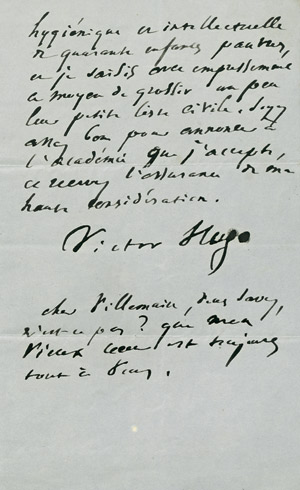 hygiénique et intellectuelle
de quarante enfants pauvres,
et je saisis avec empressement
ce moyen de grossir un peu
leur petite liste civile. Soyez
assez bon pour annoncer à
l'Académie que j'accepte,
et recevez l'assurance de ma
haute considération.
Victor Hugo
cher Villemain, vous savez,
n'est-ce pas ? que mon
vieux cœur est toujours
tout à vous.